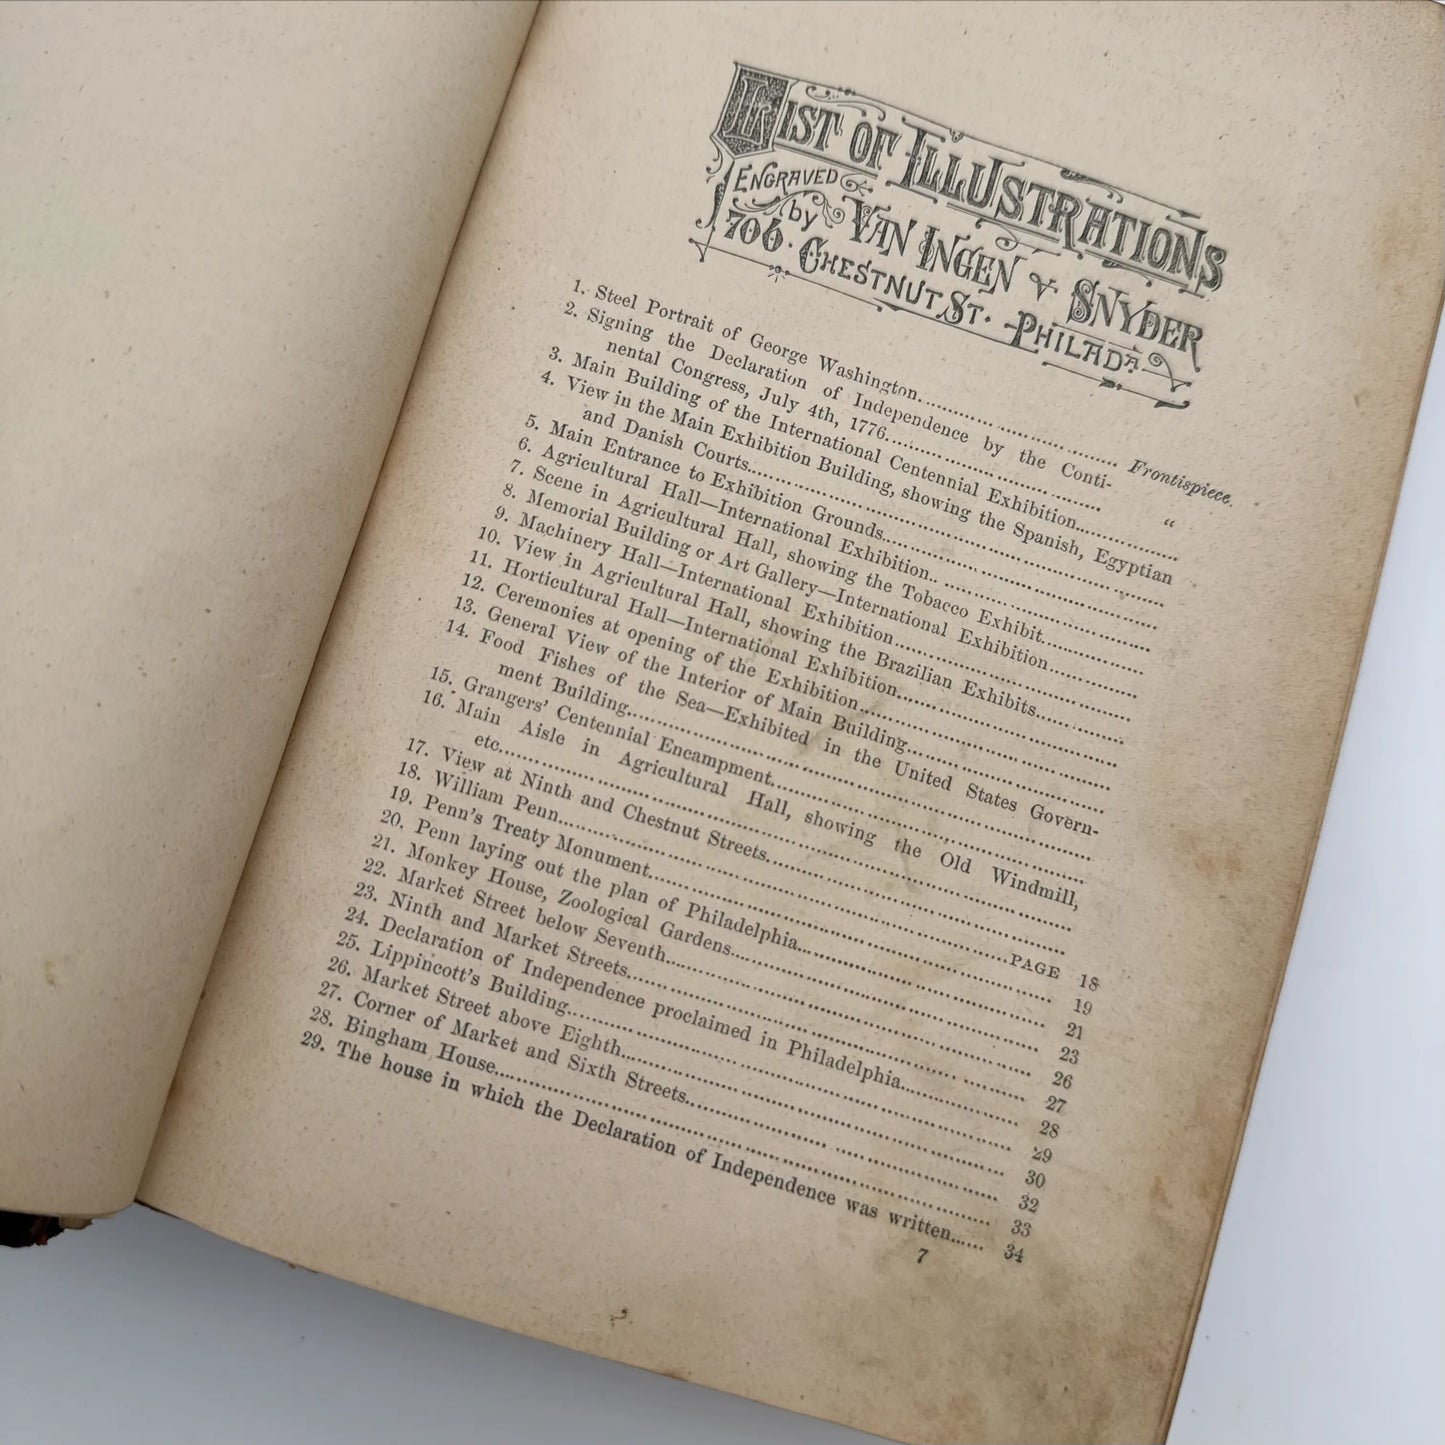 LIST OF ILLUSTRATIONS
ENGRAVED by VAN INGEN & SNYDER
706. CHESTNUT ST. PHILADA
1. Steel Portrait of George Washington.................................... Frontispiece.
2. Signing the Declaration of Independence by the Conti-
nental Congress, July 4th, 1776.................................... "
3. Main Building of the International Centennial Exhibition..................
4. View in the Main Exhibition Building, showing the Spanish, Egyptian
and Danish Courts..................................................................
5. Main Entrance to Exhibition Grounds..........................................
6. Agricultural Hall—International Exhibition....................................
7. Scene in Agricultural Hall, showing the Tobacco Exhibit..................
8. Memorial Building or Art Gallery—International Exhibition................
9. Machinery Hall—International Exhibition....................................
10. View in Agricultural Hall, showing the Brazilian Exhibits................
11. Horticultural Hall—International Exhibition..................................
12. Ceremonies at opening of the Exhibition........................................
13. General View of the Interior of Main Building................................
14. Food Fishes of the Sea—Exhibited in the United States Govern-
ment Building....................................................................
15. Grangers' Centennial Encampment..............................................
16. Main Aisle in Agricultural Hall, showing the Old Windmill,
etc..................................................................................
17. View at Ninth and Chestnut Streets............................................
18. William Penn.................................................................PAGE 18
19. Penn's Treaty Monument.......................................................... 19
20. Penn laying out the plan of Philadelphia...................................... 21
21. Monkey House, Zoological Gardens.............................................. 23
22. Market Street below Seventh...................................................... 26
23. Ninth and Market Streets.......................................................... 27
24. Declaration of Independence proclaimed in Philadelphia.................... 28
25. Lippincott's Building................................................................ 29
26. Market Street above Eighth........................................................ 30
27. Corner of Market and Sixth Streets.............................................. 32
28. Bingham House........................................................................ 33
29. The house in which the Declaration of Independence was written...... 34
7